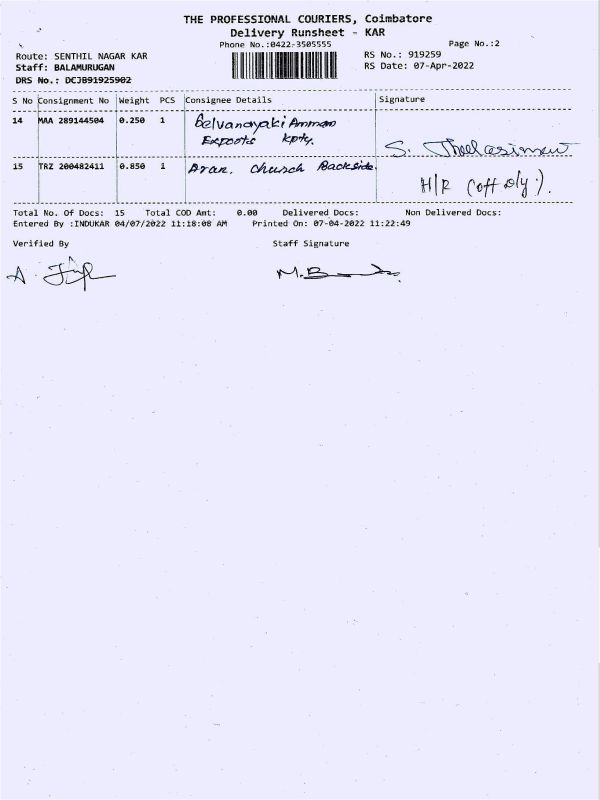 THE PROFESSIONAL COURIERS, Coimbatore
Delivery Runsheet - KAR
Phone No.:0422-3505555
Page No.:2
Route: SENTHIL NAGAR KAR
RS No.: 919259
Staff: BALAMURUGAN
RS Date: 07-Apr-2022
DRS No.: DCJB91925902
S No Consignment No Weight PCS Consignee Details Signature
14 MAA 289144504 0.250 1 Selvanayaki Amman
Exports kpty.
S.
15 TRZ 200482411 0.850 1 Aran. Church Backside.
H/R (off dly).
Total No. Of Docs: 15 Total COD Amt: 0.00 Delivered Docs: Non Delivered Docs:
Entered By :INDUKAR 04/07/2022 11:18:08 AM Printed On: 07-04-2022 11:22:49
Verified By Staff Signature
A.
M.B